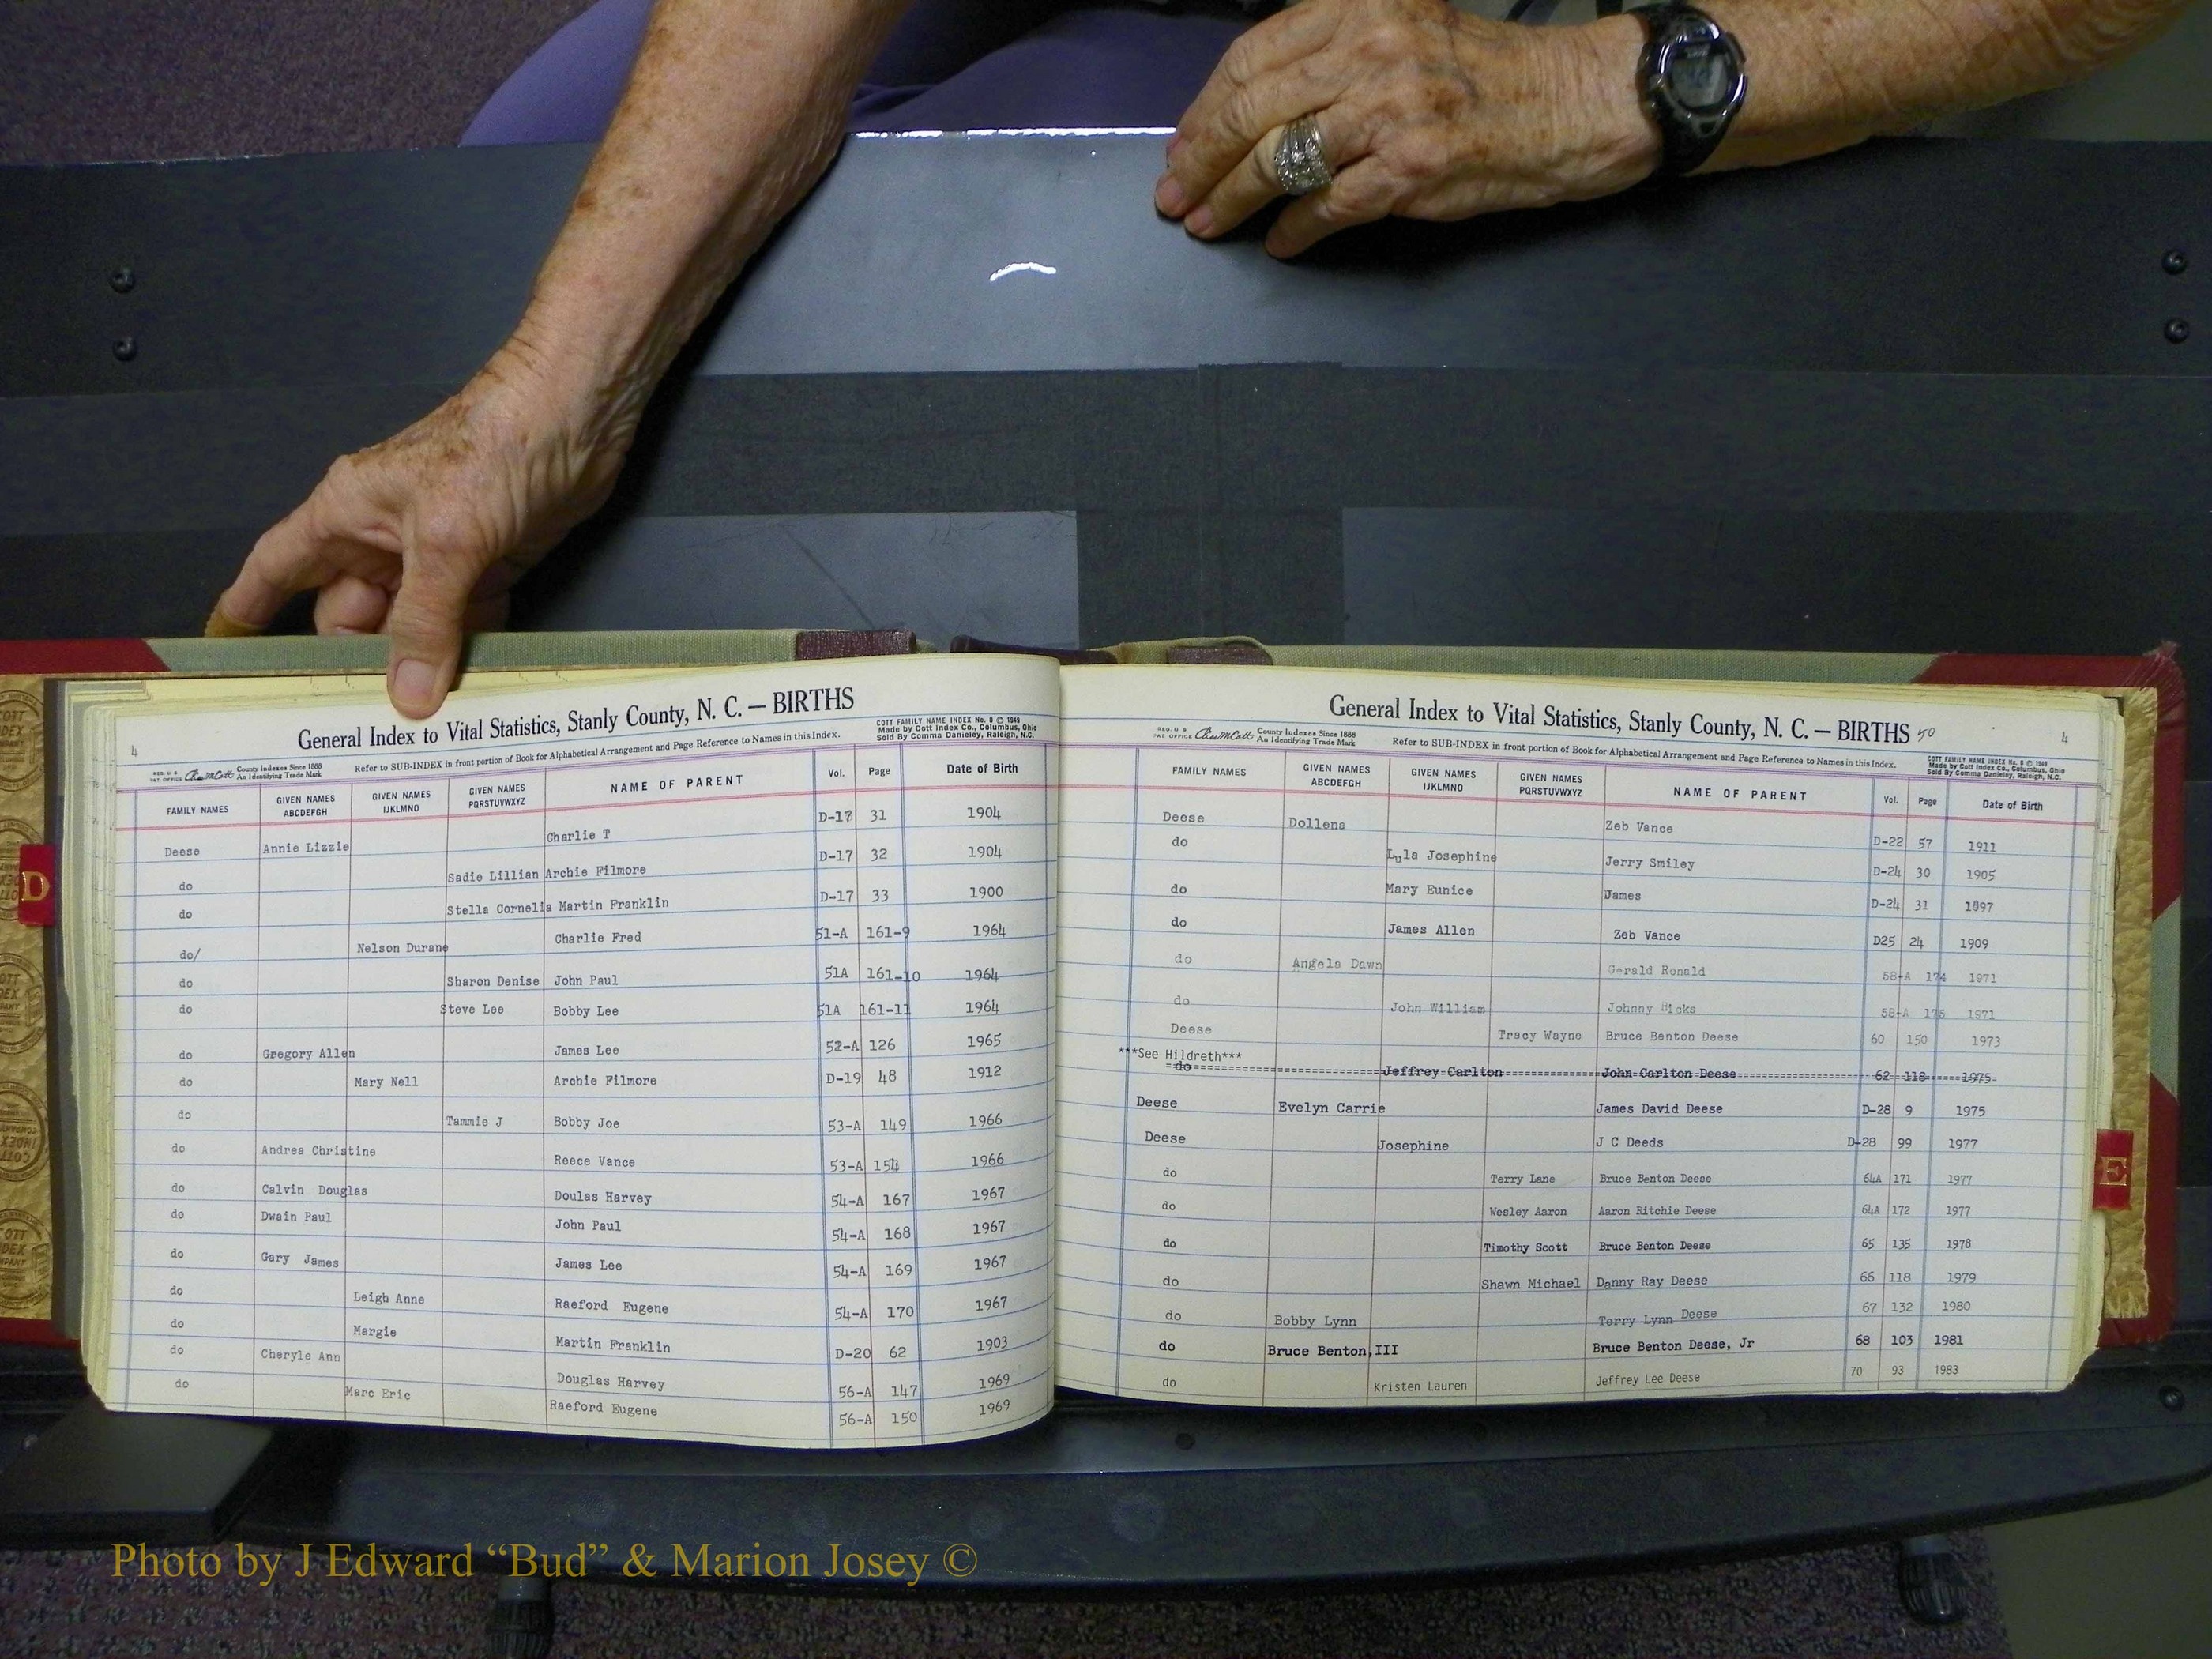 4
General Index to Vital Statistics, Stanly County, N. C. — BIRTHS
COTT FAMILY NAME INDEX No. 8 © 1949
Made by Cott Index Co., Columbus, Ohio
Sold By Comma Danieley, Raleigh, N.C.
County Indexes Since 1888
An Identifying Trade Mark
Refer to SUB-INDEX in front portion of Book for Alphabetical Arrangement and Page Reference to Names in this Index.
FAMILY NAMES GIVEN NAMES ABCDEFGH GIVEN NAMES IJKLMNO GIVEN NAMES PQRSTUVWXYZ NAME OF PARENT Vol. Page Date of Birth
Deese Annie Lizzie Charlie T D-17 31 1904
do Sadie Lillian Archie Filmore D-17 32 1904
do Stella Cornelia Martin Franklin D-17 33 1900
do/ Nelson Durane Charlie Fred 51-A 161-9 1964
do Sharon Denise John Paul 51A 161-10 1964
do Steve Lee Bobby Lee 51A 161-11 1964
do Gregory Allen James Lee 52-A 126 1965
do Mary Nell Archie Filmore D-19 48 1912
do Tammie J Bobby Joe 53-A 149 1966
do Andrea Christine Reece Vance 53-A 154 1966
do Calvin Douglas Doulas Harvey 54-A 167 1967
do Dwain Paul John Paul 54-A 168 1967
do Gary James James Lee 54-A 169 1967
do Leigh Anne Raeford Eugene 54-A 170 1967
do Margie Martin Franklin D-20 62 1903
do Cheryle Ann Douglas Harvey 56-A 147 1969
do Marc Eric Raeford Eugene 56-A 150 1969
General Index to Vital Statistics, Stanly County, N. C. — BIRTHS 50
4
County Indexes Since 1888
An Identifying Trade Mark
Refer to SUB-INDEX in front portion of Book for Alphabetical Arrangement and Page Reference to Names in this Index.
COTT FAMILY NAME INDEX No. 8 © 1949
Made by Cott Index Co., Columbus, Ohio
Sold By Comma Danieley, Raleigh, N.C.
FAMILY NAMES GIVEN NAMES ABCDEFGH GIVEN NAMES IJKLMNO GIVEN NAMES PQRSTUVWXYZ NAME OF PARENT Vol. Page Date of Birth
Deese Dollena Zeb Vance D-22 57 1911
do Lula Josephine Jerry Smiley D-24 30 1905
do Mary Eunice James D-24 31 1897
do James Allen Zeb Vance D25 24 1909
do Angela Dawn Gerald Ronald 58-A 174 1971
do John William Johnny Hicks 58-A 175 1971
Deese Tracy Wayne Bruce Benton Deese 60 150 1973
***See Hildreth***
do Jeffrey Carlton John Carlton Deese 62 118 1975
Deese Evelyn Carrie James David Deese D-28 9 1975
Deese Josephine J C Deeds D-28 99 1977
do Terry Lane Bruce Benton Deese 64A 171 1977
do Wesley Aaron Aaron Ritchie Deese 64A 172 1977
do Timothy Scott Bruce Benton Deese 65 135 1978
do Shawn Michael Danny Ray Deese 66 118 1979
do Bobby Lynn Terry Lynn Deese 67 132 1980
do Bruce Benton,III Bruce Benton Deese, Jr 68 103 1981
do Kristen Lauren Jeffrey Lee Deese 70 93 1983
D
E
Photo by J Edward “Bud” & Marion Josey ©